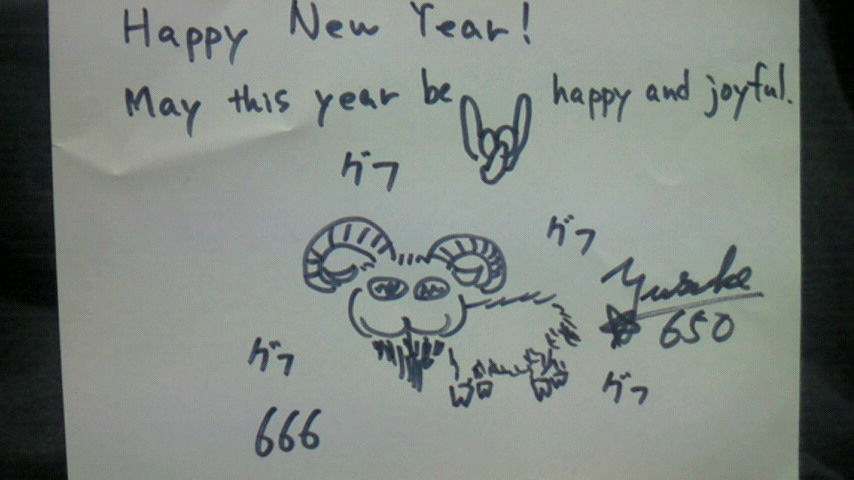 Happy New Year!
May this year be happy and joyful.
グフ
グフ
Yusuke
650
グフ
グフ
666